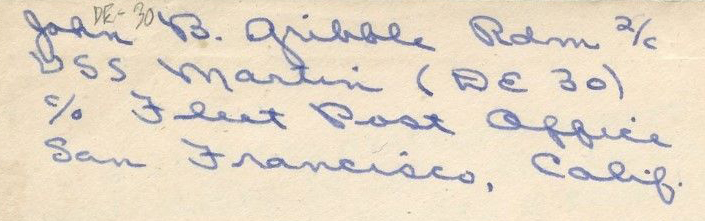 DE-30
John B. Gribble Rdm 2/c
USS Martin (DE 30)
c/o Fleet Post Office
San Francisco, Calif.